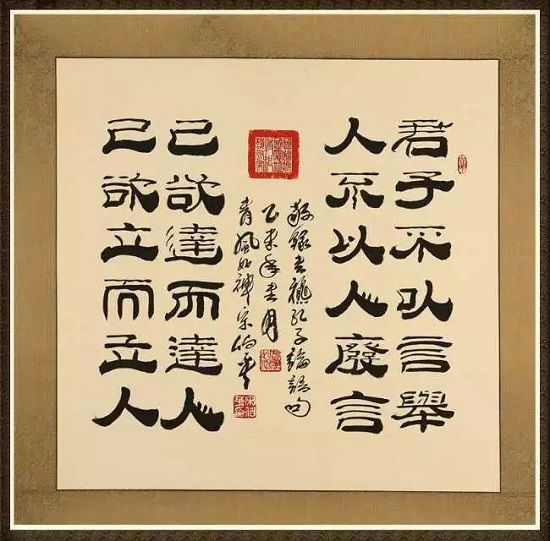 君子不以言舉
人不以人廢言
敬錄孔子論語句
乙未年春月
己欲達而達人
己欲立而立人